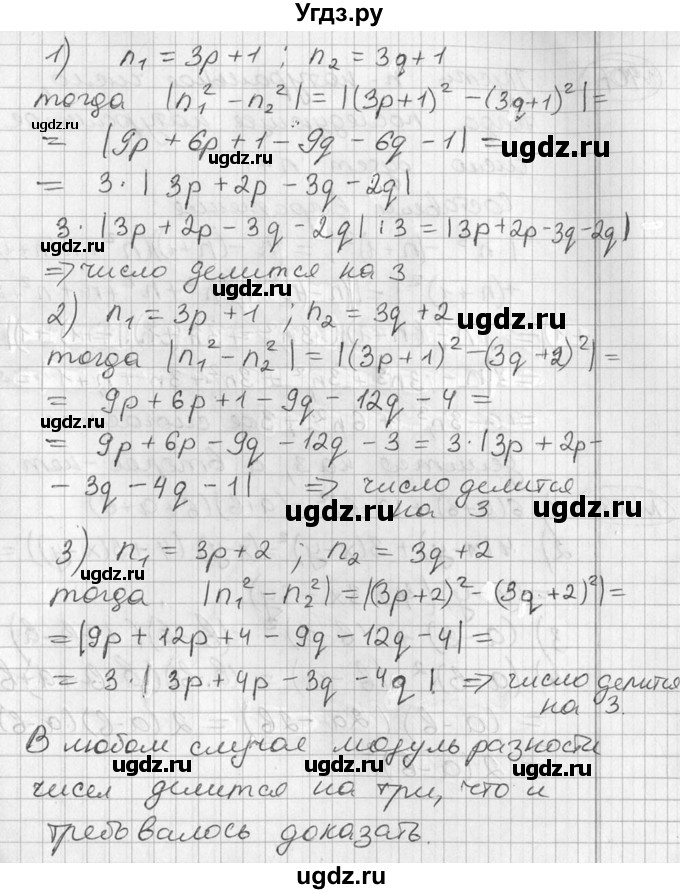 Угдз.ру
1) n₁ = 3p + 1 ; n₂ = 3q + 1
тогда |n₁² - n₂²| = |(3p+1)² - (3q+1)²| =
ugdz.ru
ugdz.ru
= |9p + 6p + 1 - 9q - 6q - 1| =
ugdz.ru
ugdz.ru
= 3 · | 3p + 2p - 3q - 2q|
3 · |3p + 2p - 3q - 2q| : 3 = |3p+2p-3q-2q|
ugdz.ru
⇒ число делится на 3
ugdz.ru
2) n₁ = 3p + 1 ; n₂ = 3q + 2
ugdz.ru
тогда |n₁² - n₂²| = |(3p+1)² - (3q+2)²| =
= 9p + 6p + 1 - 9q - 12q - 4 =
ugdz.ru
ugdz.ru
= 9p + 6p - 9q - 12q - 3 = 3 · |3p + 2p -
- 3q - 4q - 1| ⇒ число делится
ugdz.ru
на 3
ugdz.ru
3) n₁ = 3p + 2 ; n₂ = 3q + 2
ugdz.ru
тогда |n₁² - n₂²| = |(3p+2)² - (3q+2)²| =
ugdz.ru
= |9p + 12p + 4 - 9q - 12q - 4| =
ugdz.ru
= 3 · | 3p + 4p - 3q - 4q | ⇒ число делится
ugdz.ru
на 3.
В любом случае модуль разности
ugdz.ru
ugdz.ru
чисел делится на три, что и
ugdz.ru
требовалось доказать.
ugdz.ru